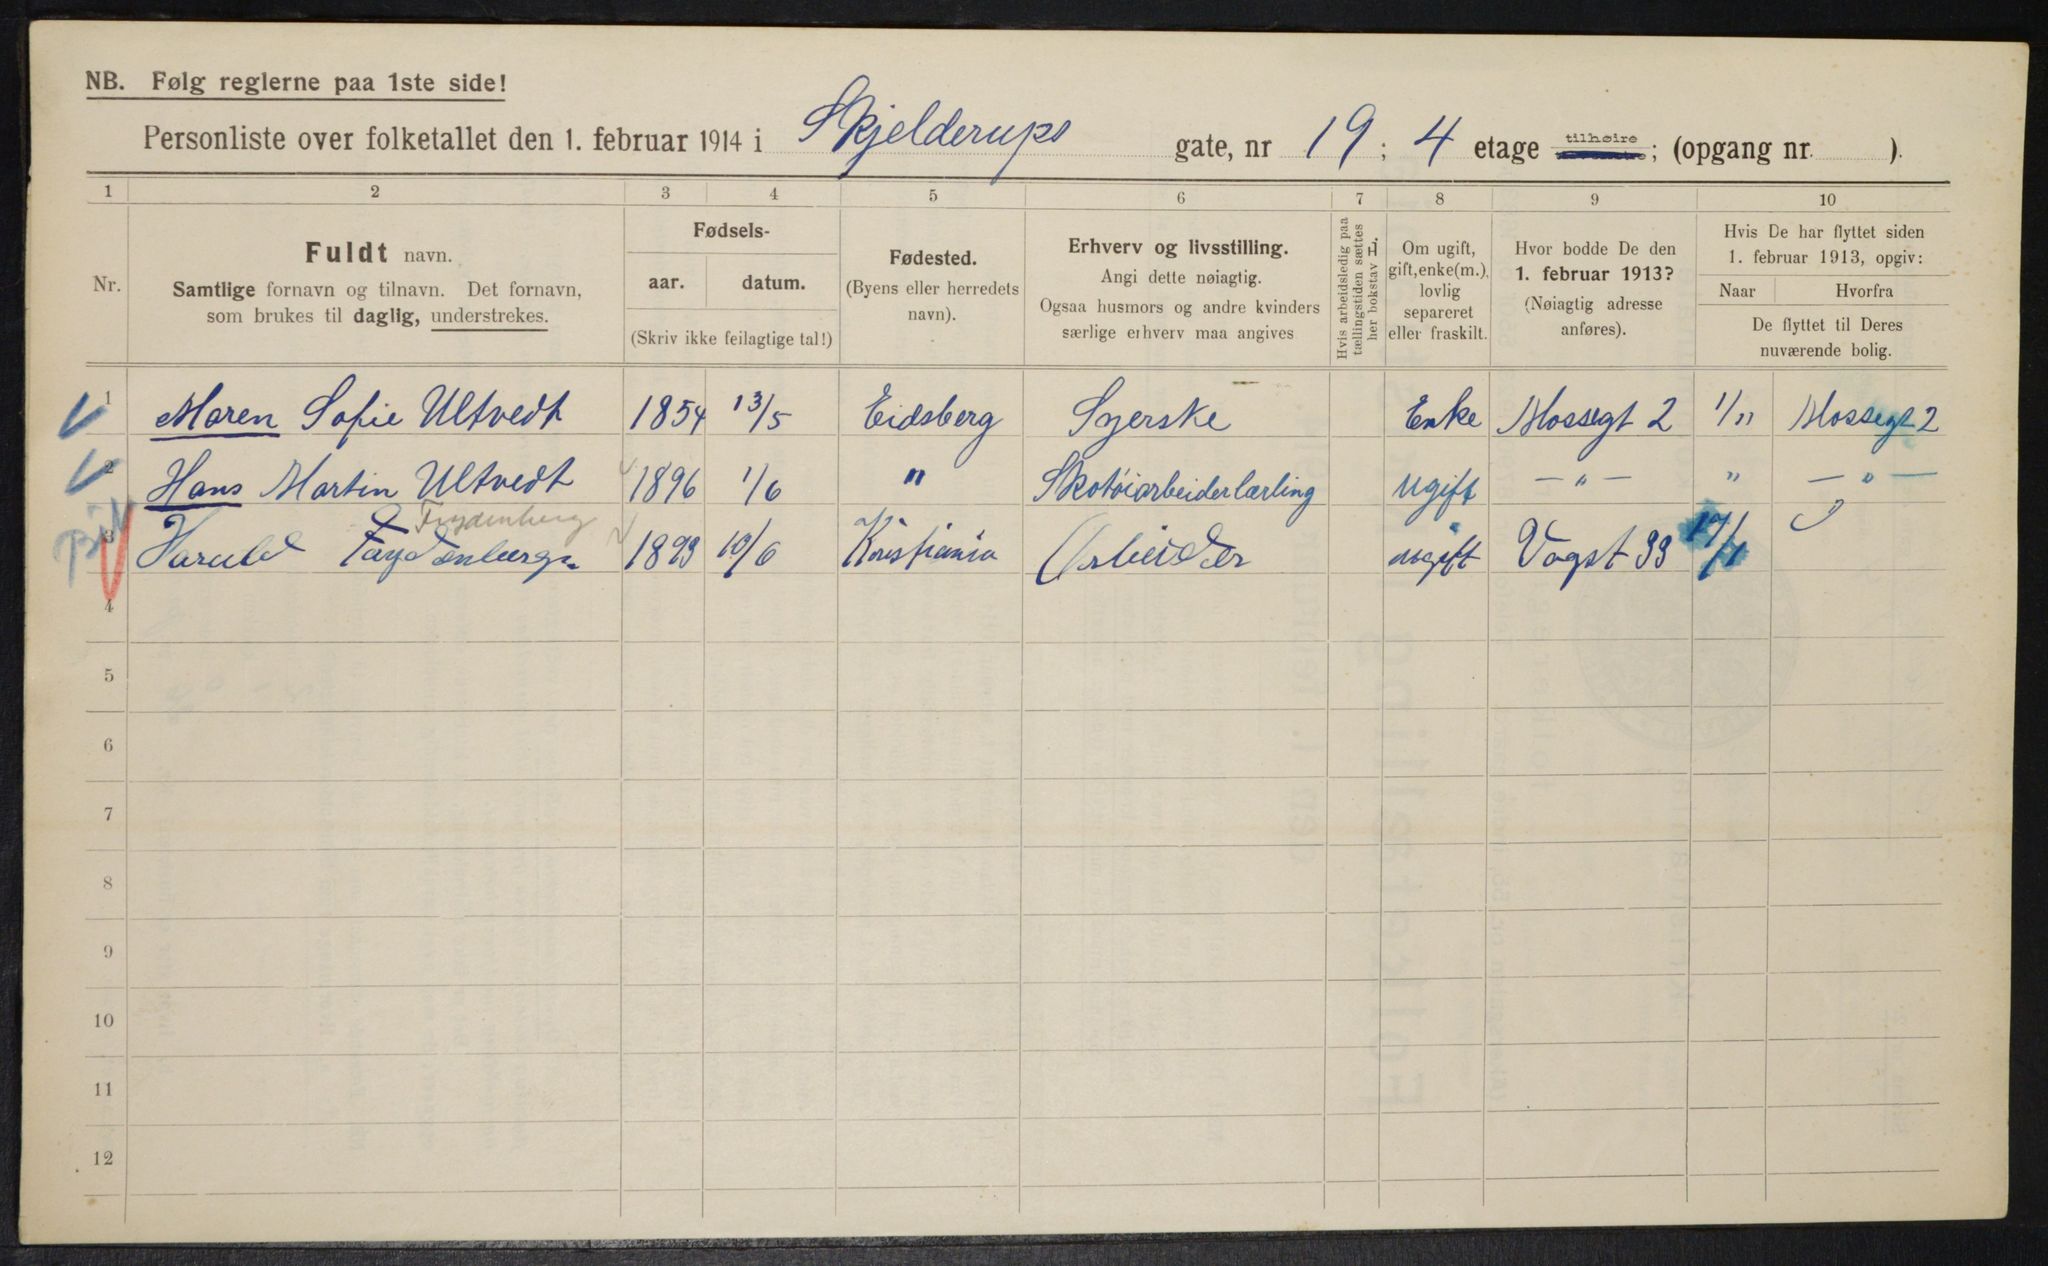 NB. Følg reglerne paa 1ste side!
Personliste over folketallet den 1. februar 1914 i Skjelderups gate, nr 19 ; 4 etage tilhøire ; (opgang nr. ).
1 2 3 4 5 6 7 8 9 10
Nr.
Fuldt navn.
Samtlige fornavn og tilnavn. Det fornavn,
som brukes til daglig, understrekes.
Fødsels-
aar. datum.
(Skriv ikke feilagtige tal!)
Fødested.
(Byens eller herredets
navn).
Erhverv og livsstilling.
Angi dette nøiagtig.
Ogsaa husmors og andre kvinders
særlige erhverv maa angives
Hvis arbeidsledig paa
tællingstiden sættes
her bokstav L.
Om ugift,
gift, enke(m.),
lovlig
separeret
eller fraskilt.
Hvor bodde De den
1. februar 1913?
(Nøiagtig adresse
anføres).
Hvis De har flyttet siden
1. februar 1913, opgiv:
Naar Hvorfra
De flyttet til Deres
nuværende bolig.
1 Maren Sofie Ultvedt 1854 13/5 Eidsberg Syerske Enke Mossegt 2 1/11 Mossegt 2
2 Hans Martin Ultvedt 1896 1/6 " Skotøiarbeiderlærling ugift — " — " — " —
Frydenberg
3 Harald 1893 10/6 Kristiania Arbeider ugift Vogst 33 17/1
4
5
6
7
8
9
10
11
12